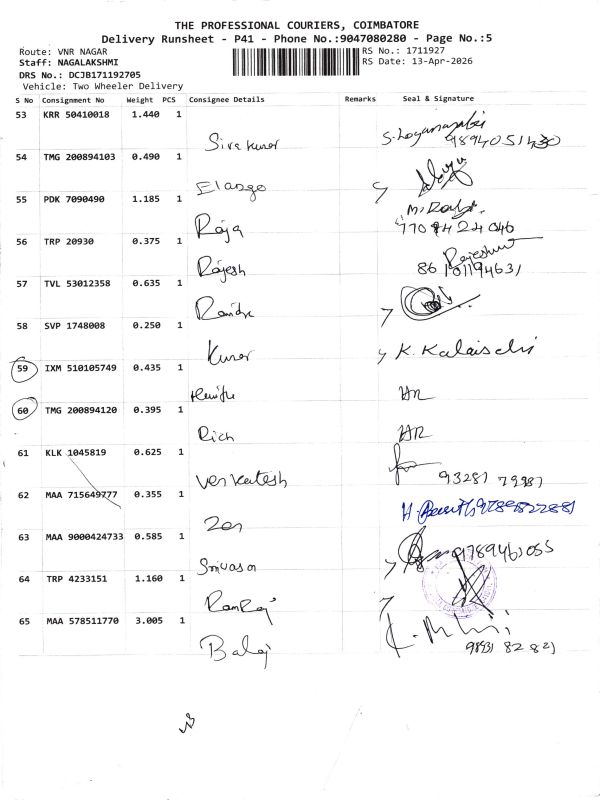 THE PROFESSIONAL COURIERS, COIMBATORE
Delivery Runsheet - P41 - Phone No.:9047080280 - Page No.:5
Route: VNR NAGAR
Staff: NAGALAKSHMI
DRS No.: DCJB171192705
Vehicle: Two Wheeler Delivery
RS No.: 1711927
RS Date: 13-Apr-2026
S No Consignment No Weight PCS Consignee Details Remarks Seal & Signature
53 KRR 50410018 1.440 1
Siva kumar
54 TMG 200894103 0.490 1
Elango
55 PDK 7090490 1.185 1
Raja
56 TRP 20930 0.375 1
Rajesh Rajeshwr
57 TVL 53012358 0.635 1
58 SVP 1748008 0.250 1
Kumar K. Kalaiselvi
59 IXM 510105749 0.435 1
HR
60 TMG 200894120 0.395 1
Rich HR
61 KLK 1045819 0.625 1
Venkatesh 93281
62 MAA 715649777 0.355 1
63 MAA 9000424733 0.585 1
Srivasan 9789461055
64 TRP 4233151 1.160 1
RamRaj
65 MAA 578511770 3.005 1
Balaj